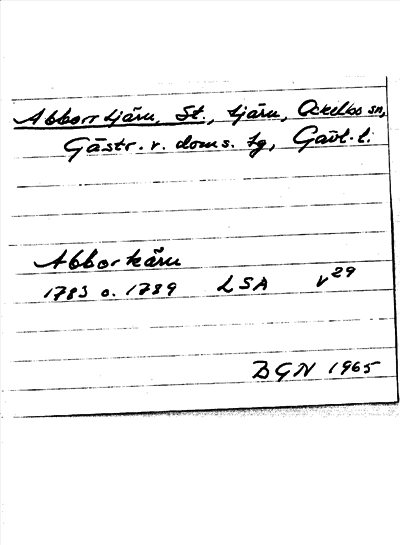 Abborrtjärn, St., tjärn, Ockelbo sn,
Gästr. v. doms. tg, Gävl. l.
Abborkärn
1783 o. 1789 LSA v29
BGN 1965